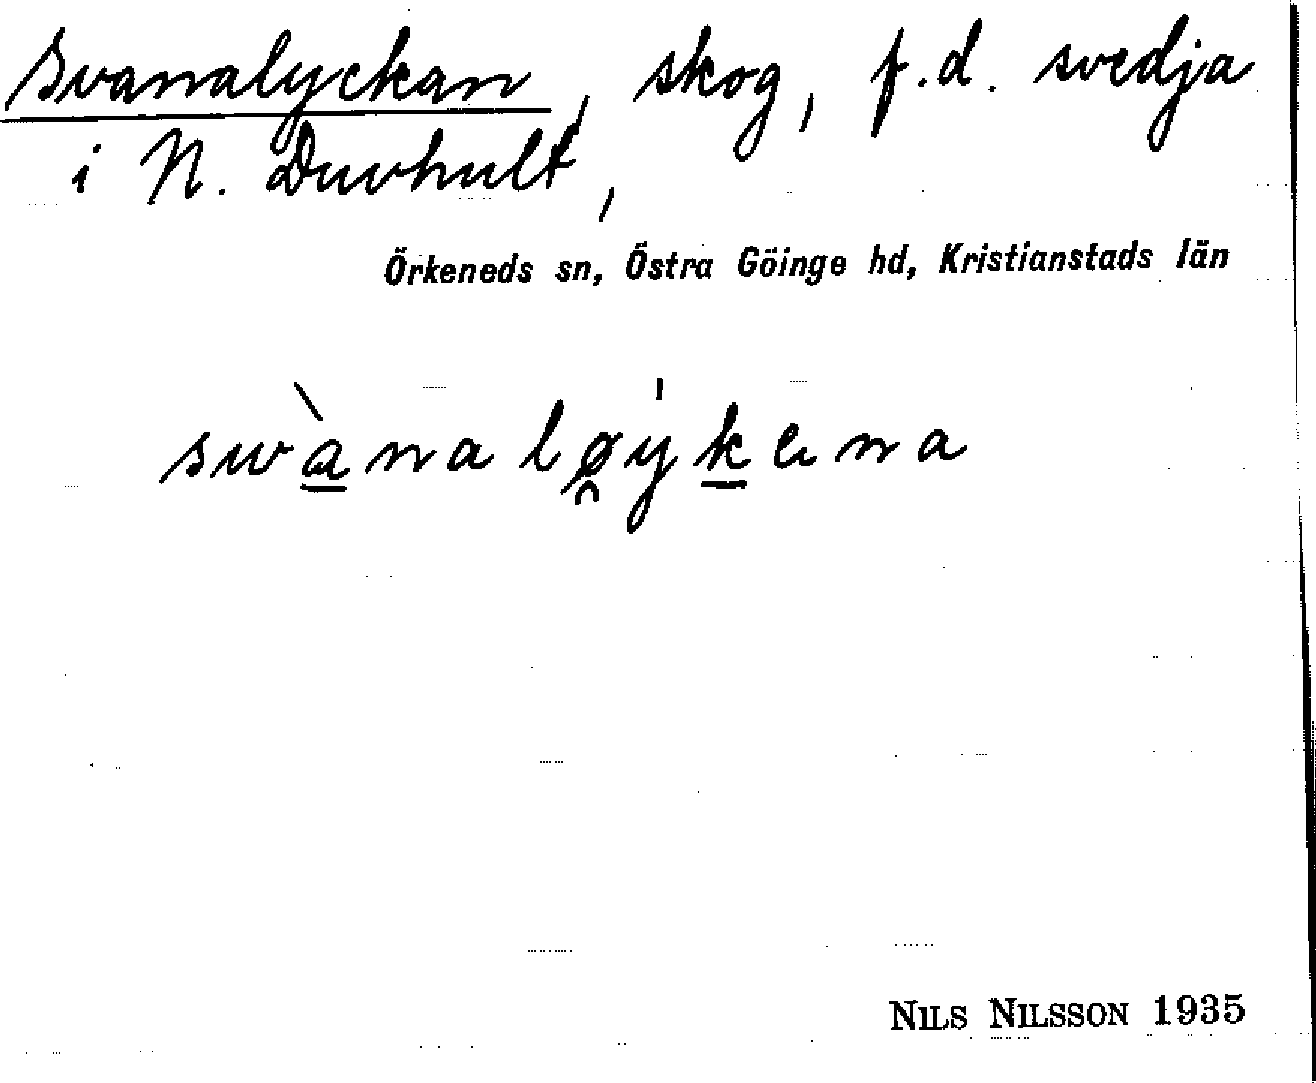 Svanalyckan, skog, f.d. svedja
i N. Duvhult,
Örkeneds sn, Östra Göinge hd, Kristianstads län
swànaløykena
NILS NILSSON 1935